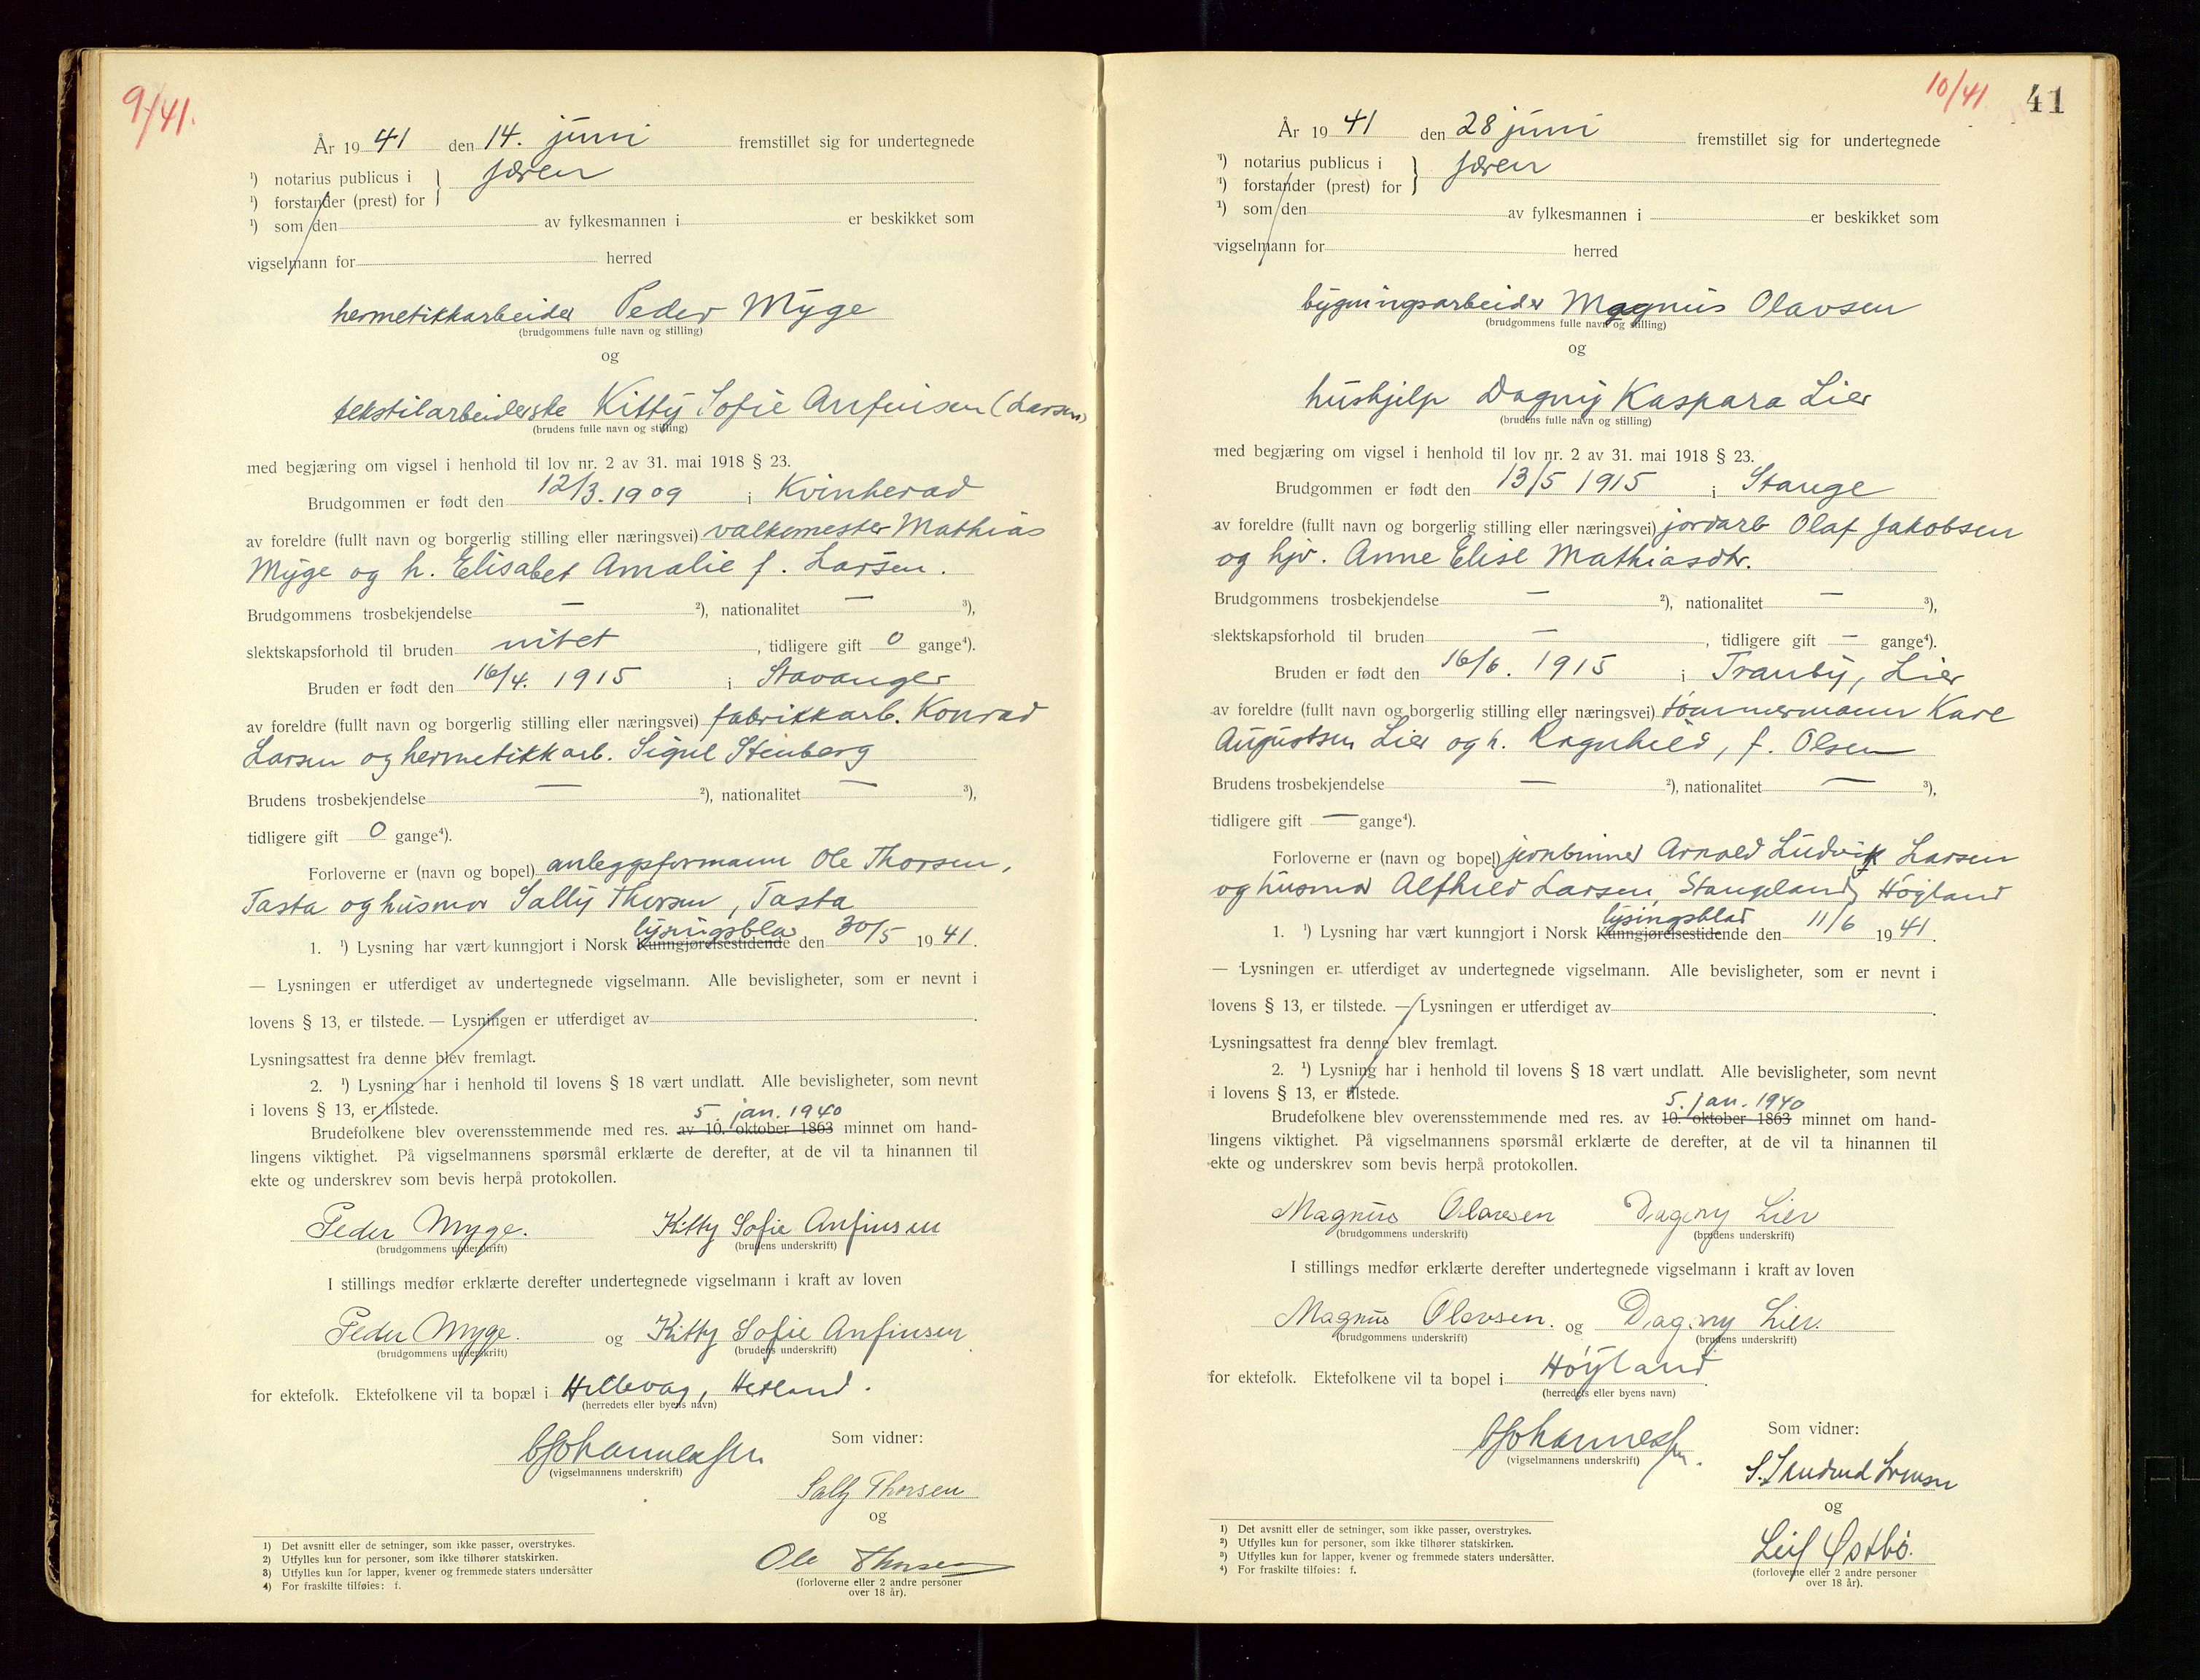 9/41.
År 1941 den 14. juni fremstillet sig for undertegnede
¹) notarius publicus i } Jæren
¹) forstander (prest) for
¹) som den av fylkesmannen i er beskikket som
vigselmann for herred
hermetikkarbeider Peder Myge
(brudgommens fulle navn og stilling)
og
tekstilarbeiderske Kitty Sofie Anfinsen (Larsen)
(brudens fulle navn og stilling)
med begjæring om vigsel i henhold til lov nr. 2 av 31. mai 1918 § 23.
Brudgommen er født den 12/3. 1909 i Kvinherad
av foreldre (fullt navn og borgerlig stilling eller næringsvei) valkemester Mathias
Myge og h. Elisabet Amalie f. Larsen.
Brudgommens trosbekjendelse — ²), nationalitet — ³),
slektskapsforhold til bruden intet, tidligere gift 0 gange⁴).
Bruden er født den 16/4. 1915 i Stavanger
av foreldre (fullt navn og borgerlig stilling eller næringsvei) fabrikkarb. Konrad
Larsen og hermetikkarb. Signe Stenberg
Brudens trosbekjendelse — ²), nationalitet — ³),
tidligere gift 0 gange⁴).
Forloverne er (navn og bopel) anleggsformann Ole Thorsen,
Tasta og husmor Sally Thorsen, Tasta
lysingsblad
1. ¹) Lysning har vært kunngjort i Norsk Kunngjørelsestidende den 30/5 1941.
— Lysningen er utferdiget av undertegnede vigselmann. Alle bevisligheter, som er nevnt i
lovens § 13, er tilstede. — Lysningen er utferdiget av .
Lysningsattest fra denne blev fremlagt.
2. ¹) Lysning har i henhold til lovens § 18 vært undlatt. Alle bevisligheter, som nevnt
i lovens § 13, er tilstede.
5. jan. 1940
Brudefolkene blev overensstemmende med res. av 10. oktober 1863 minnet om hand-
lingens viktighet. På vigselmannens spørsmål erklærte de derefter, at de vil ta hinannen til
ekte og underskrev som bevis herpå protokollen.
Peder Myge. Kitty Sofie Anfinsen
(brudgommens underskrift) (brudens underskrift)
I stillings medfør erklærte derefter undertegnede vigselmann i kraft av loven
Peder Myge. og Kitty Sofie Anfinsen
(brudgommens underskrift) (brudens underskrift)
for ektefolk. Ektefolkene vil ta bopæl i Hillevåg, Hetland.
(herredets eller byens navn)
Johannessen
(vigselmannens underskrift)
Som vidner:
Sally Thorsen
og
Ole Thorsen
(forloverne eller 2 andre personer
over 18 år).
1) Det avsnitt eller de setninger, som ikke passer, overstrykes.
2) Utfylles kun for personer, som ikke tilhører statskirken.
3) Utfylles kun for lapper, kvener og fremmede staters undersåtter
4) For fraskilte tilføies: f.
10/41 41
År 1941 den 28 juni fremstillet sig for undertegnede
¹) notarius publicus i } Jæren
¹) forstander (prest) for
¹) som den av fylkesmannen i er beskikket som
vigselmann for herred
bygningsarbeider Magnus Olavsen
(brudgommens fulle navn og stilling)
og
hushjelp Dagny Kaspara Lier
(brudens fulle navn og stilling)
med begjæring om vigsel i henhold til lov nr. 2 av 31. mai 1918 § 23.
Brudgommen er født den 13/5 1915 i Stange
av foreldre (fullt navn og borgerlig stilling eller næringsvei) jordarb Olaf Jakobsen
og hjv. Anne Elise Mathiasdtr.
Brudgommens trosbekjendelse — ²), nationalitet — ³),
slektskapsforhold til bruden — , tidligere gift — gange⁴).
Bruden er født den 16/6. 1915 i Tranby, Lier
av foreldre (fullt navn og borgerlig stilling eller næringsvei) tømmermann Kare
Augustsen Lier og h. Ragnhild, f. Olsen
Brudens trosbekjendelse — ²), nationalitet — ³),
tidligere gift — gange⁴).
Forloverne er (navn og bopel) jernbinner Arnold Ludvik Larsen
og husmor Alfhild Larsen, Stangeland, Høyland
lysingsblad
1. ¹) Lysning har vært kunngjort i Norsk Kunngjørelsestidende den 11/6 1941.
— Lysningen er utferdiget av undertegnede vigselmann. Alle bevisligheter, som er nevnt i
lovens § 13, er tilstede. — Lysningen er utferdiget av .
Lysningsattest fra denne blev fremlagt.
2. ¹) Lysning har i henhold til lovens § 18 vært undlatt. Alle bevisligheter, som nevnt
i lovens § 13, er tilstede.
5. jan. 1940
Brudefolkene blev overensstemmende med res. av 10. oktober 1863 minnet om hand-
lingens viktighet. På vigselmannens spørsmål erklærte de derefter, at de vil ta hinannen til
ekte og underskrev som bevis herpå protokollen.
Magnus Olavsen Dagny Lier
(brudgommens underskrift) (brudens underskrift)
I stillings medfør erklærte derefter undertegnede vigselmann i kraft av loven
Magnus Olavsen. og Dagny Lier.
(brudgommens underskrift) (brudens underskrift)
for ektefolk. Ektefolkene vil ta bopel i Høyland.
(herredets eller byens navn)
Johannessen.
(vigselmannens underskrift)
Som vidner:
og
Leif Østbø.
(forloverne eller 2 andre personer
over 18 år).
¹) Det avsnitt eller de setninger, som ikke passer, overstrykes.
²) Utfylles kun for personer, som ikke tilhører statskirken.
³) Utfylles kun for lapper, kvener og fremmede staters undersåtter.
⁴) For fraskilte tilføies: f.